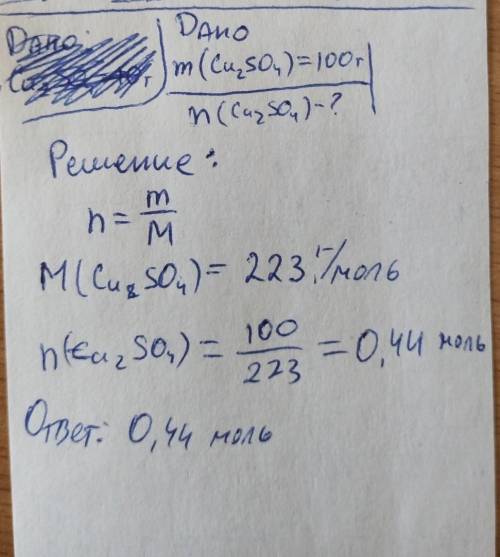 Дано
Дано:
m(Cu₂SO₄)=100г
n(Cu₂SO₄)-?
Решение:
n = m/M
M(Cu₂SO₄) = 223 г/моль
n(Cu₂SO₄) = 100/223 = 0,44 моль
Ответ: 0,44 моль